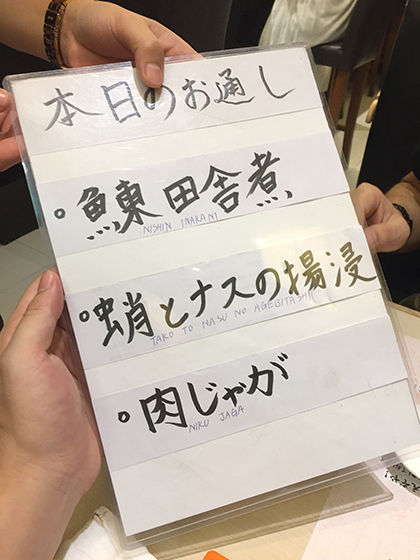 本日のお通し
・鰊田舎煮
NISHIN INAKANI
・蛸とナスの揚浸
TAKO TO NASU NO AGEBITASHI
・肉じゃが
NIKU JAGA